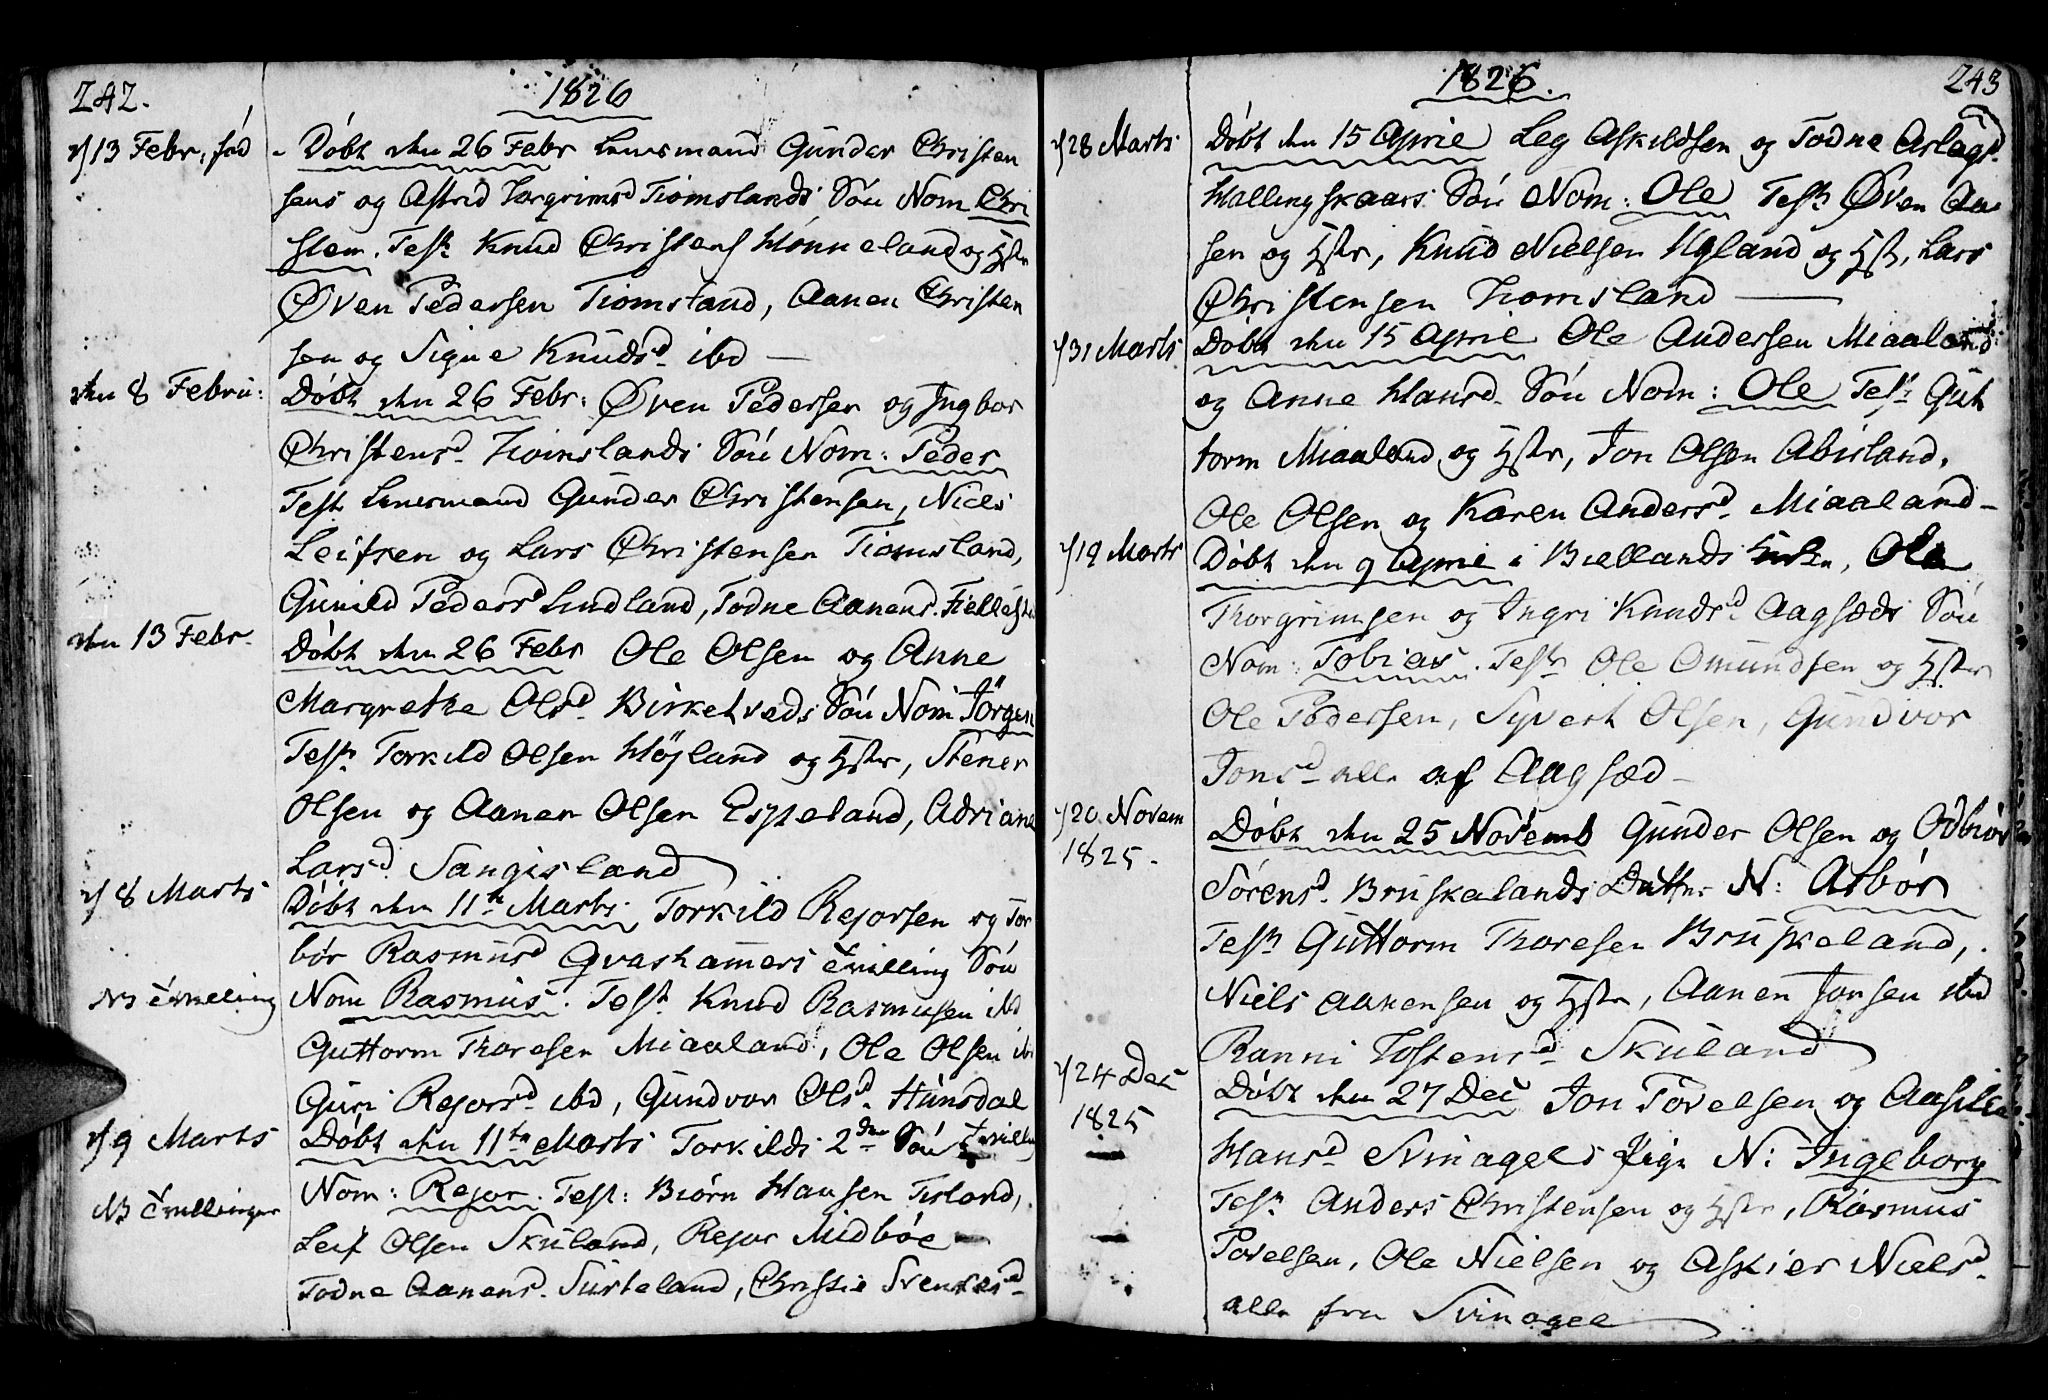 242.
1826
d 13 Febr. fød
Døbt den 26 Febr Lensmand Gunder Christen
sens og Astrid Torgrimsd Tiomslands Søn Nom Chri
sten. Test Knud Christens Hønneland og Hstr
Øven Pedersen Tiomsland, Aanen Christen
sen og Signe Knudsd ibd —
den 8 Febru:
Døbt den 26 Febr: Øven Pedersen og Ingbor
Christensd Tiomslands Søn Nom: Peder
Test Lensmand Gunder Christensen, Niels
Leifsen og Lars Christensen Tiomsland,
Gunild Pedersd Lindland, Todne Aanens.
den 13 Febr.
Døbt den 26 Febr Ole Olsen og Anne
Margrethe Olsd Birketveds Søn Nom Jörgen
Test Torkild Olsen Höyland og Hstr, Stener
Olsen og Aanen Olsen Espeland, Adriane
Larsd. Sangisland
d 8 Marts
Døbt den 11te Marts Torkild Rejorsen og Tor
bør Rasmusd Qvashamers Tvilling Søn
NB Tvilling
Nom Rasmus. Test Knud Rasmusen ibd
Guttorm Thoresen Miaaland, Ole Olsen ibd
Guri Rejorsd ibd, Gundvor Olsd. Hunsdal
d 9 Marts
Døbt den 11te Marts Torkilds 2den Søn Tvilling
NB Tvillinger
Nom: Rejor. Test: Biørn Hansen Tisland,
Leif Olsen Skuland, Rejor Midbøe
Todne Aanensd. Surteland, Christie Svensd
1826.
243
d 28 Marts
Døbt den 15 April Leg Askildsen og Todne Aslagsd
Hallingskaars Søn Nom: Ole Test Øven Aa
sen og Hstr, Knud Nielsen Ugland og Hst, Lars
Christensen Tiomsland —
d 31 Marts
Døbt den 15 April Ole Andersen Miaaland
og Anne Hansd Søn Nom: Ole Test Gut
torm Miaaland og Hstr, Jon Olsen Abisland,
Ole Olsen og Karen Andersd Miaaland —
d 19 Marts
Døbt den 9 April i Biellands Kirke, Ole
Thorgrimsen og Ingri Knudsd Aagsæds Søn
Nom: Tobias. Test Ole Omundsen og Hstr
Ole Pedersen, Syvert Olsen, Gundvor
Jonsd alle af Aagsæd —
d 20 Novem
1825.
Døbt den 25 Novemb Gunder Olsen og Odbiør
Sørensd. Bruskelands Datter N: Asbør
Test Guttorm Thoresen Bruskeland,
Niels Aanensen og Hstr, Aanen Jonsen ibd
Ranni Tostensd Skuland
d 24 Dec
1825
Døbt den 27 Dec Jon Povelsen og Aasille
Hansd Svinagels Pige N: Ingeborg
Test Anders Christensen og Hstr, Rasmus
Povelsen, Ole Nielsen og Askier Nielsd.
alle fra Svinagel